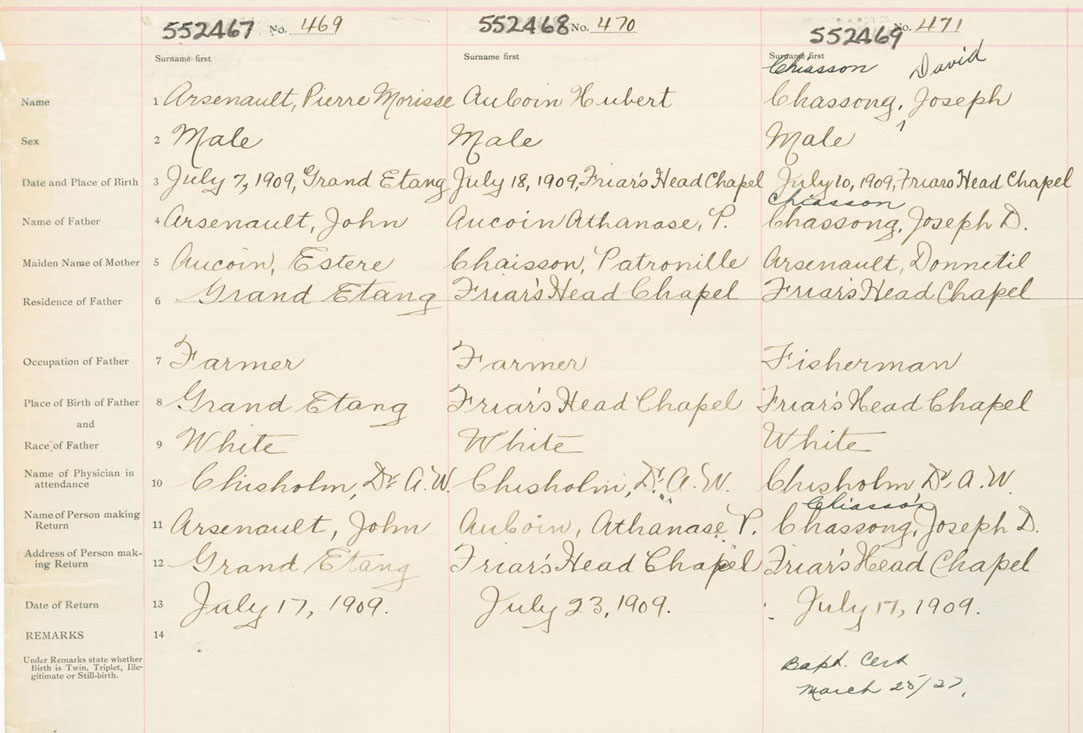 552467 No. 469 552468 No. 470 552469 No. 471
Surname first Surname first Surname first
Chiasson David
Name 1 Arsenault, Pierre Morisse AuCoin Hubert Chassong, Joseph
Sex 2 Male Male Male
Date and Place of Birth 3 July 7, 1909, Grand Etang July 18, 1909, Friar's Head Chapel July 10, 1909, Friar's Head Chapel
Chiasson
Name of Father 4 Arsenault, John Aucoin Athanase, P. Chassong, Joseph D.
Maiden Name of Mother 5 Aucoin, Estere Chaisson, Patronille Arsenault, Donnetil
Residence of Father 6 Grand Etang Friar's Head Chapel Friar's Head Chapel
Occupation of Father 7 Farmer Farmer Fisherman
Place of Birth of Father 8 Grand Etang Friar's Head Chapel Friar's Head Chapel
and
Race of Father 9 White White White
Name of Physician in
attendance 10 Chisholm, Dr A.W. Chisholm, Dr. A.W. Chisholm Dr. A.W.
Chiasson
Name of Person making
Return 11 Arsenault, John AuCoin, Athanase P. Chassong, Joseph D.
Address of Person mak-
ing Return 12 Grand Etang Friar's Head Chapel Friar's Head Chapel
Date of Return 13 July 17, 1909. July 23, 1909. July 17, 1909.
REMARKS 14
Under Remarks state whether
Birth is Twin, Triplet, Ille-
gitimate or Still-birth.
Bapt. Cert
March 25/27.